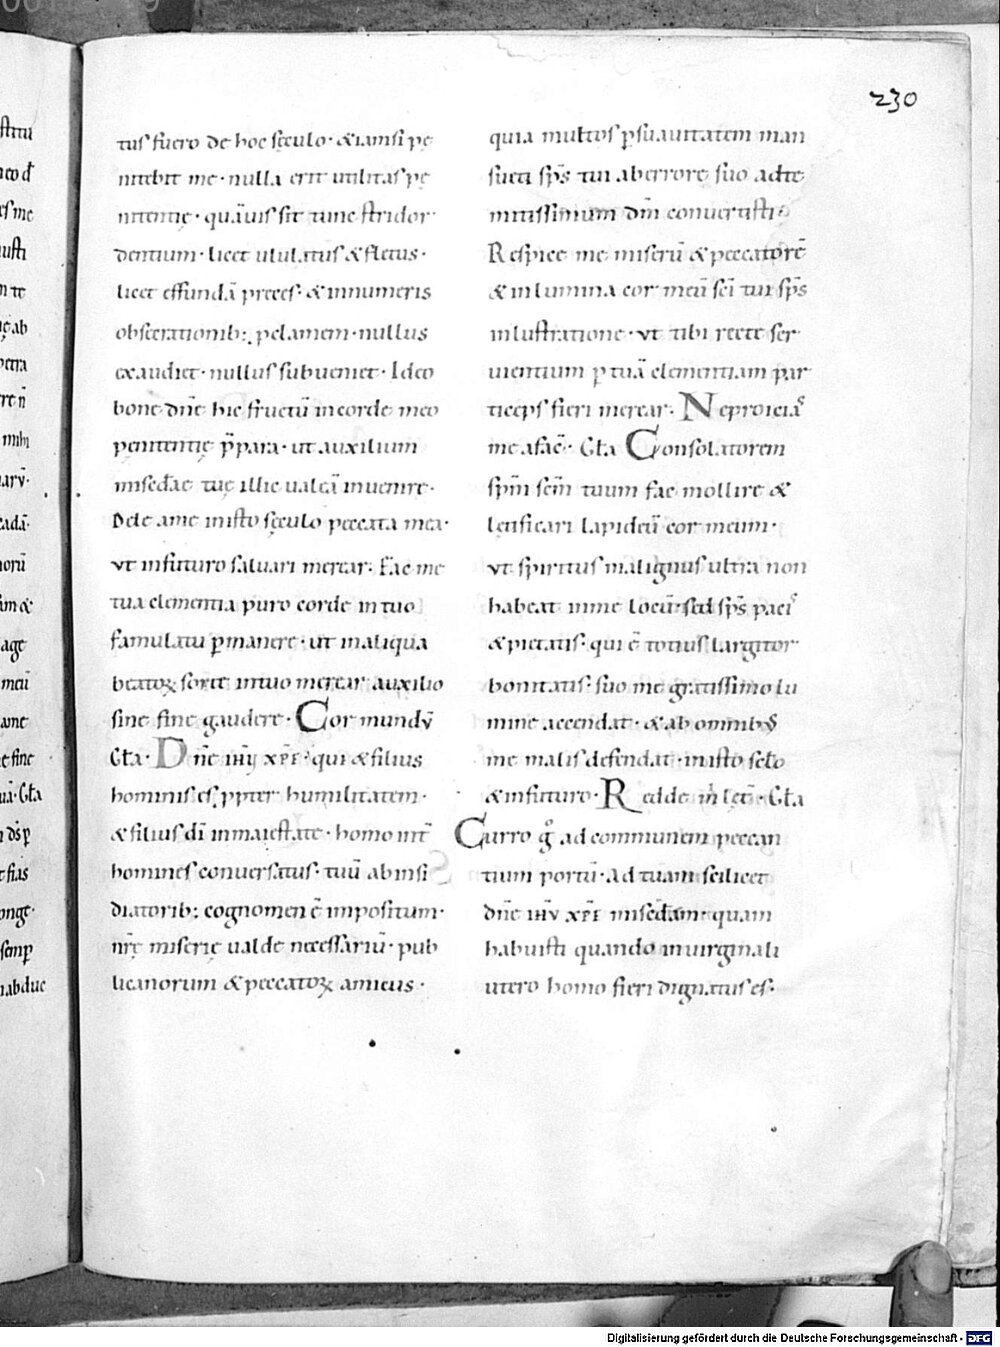 230
tus fuero de hoc sęculo · & iam si pę
nitebit me · nulla erit utilitas pę
nitentię · quāuis sit tunc stridor
dentium · licet ululatus & fletus ·
licet effundā preces · & innumeris
obsecrationib; pelamem · nullus
exaudiet · nullus subueniet · Ideo
bone dn̄e hic fructū in corde meo
penitentię p̄para · ut auxilium
misedāe tuę illic ualeā inuenire ·
Dele a me in isto sęculo peccata mea ·
vt in futuro saluari merear · Fac me
tua clementia puro corde in tuo
famulatu ꝑmanere · ut in aliqua
beatoꝝ sorte in tuo merear auxilio
sine fine gaudere · Cor mundv̄
Gła · Dn̄e ihv̄ xp̄e · qui & filius
hominis es ꝓpter humilitatem ·
& filius dī in maiestate · homo int̄
homines conuersatus · tuū ab insi
diatorib; cognomen ē impositum ·
nr̄ę miserię ualde necessariū · pub
licanorum & peccatoꝝ amicus ·
quia multos ꝑ suauitatem man
sueti sp̄s tui ab errore suo ad te
mitissimum dn̄m conuertisti ·
Respice me miserū & peccatorē
& inlumina cor meū sc̄i tui sp̄s
inlustratione · vt tibi recte ser
uientium ꝑ tuā clementiam par
ticeps fieri merear · Ne proicias
me a faciē · Gła Consolatorem
sp̄m sc̄m tuum fac mollire &
letificari lapideū cor meum ·
vt spiritus malignus ultra non
habeat in me locū · sed sp̄s pacis
& pietatis · qui ē totius largitor
bonitatis · suo me gratissimo lu
mine accendat · & ab omnibus
me malis defendat · in isto sclo
& in futuro · Redde m̄ lęt̄ · Gła
Curro g° ad communem peccan
tium portū · ad tuam scilicet
dn̄e ihv̄ xp̄e misedam quam
habuisti quando in uirginali
utero homo fieri dignatus es ·
Digitalisierung gefördert durch die Deutsche Forschungsgemeinschaft - DFG